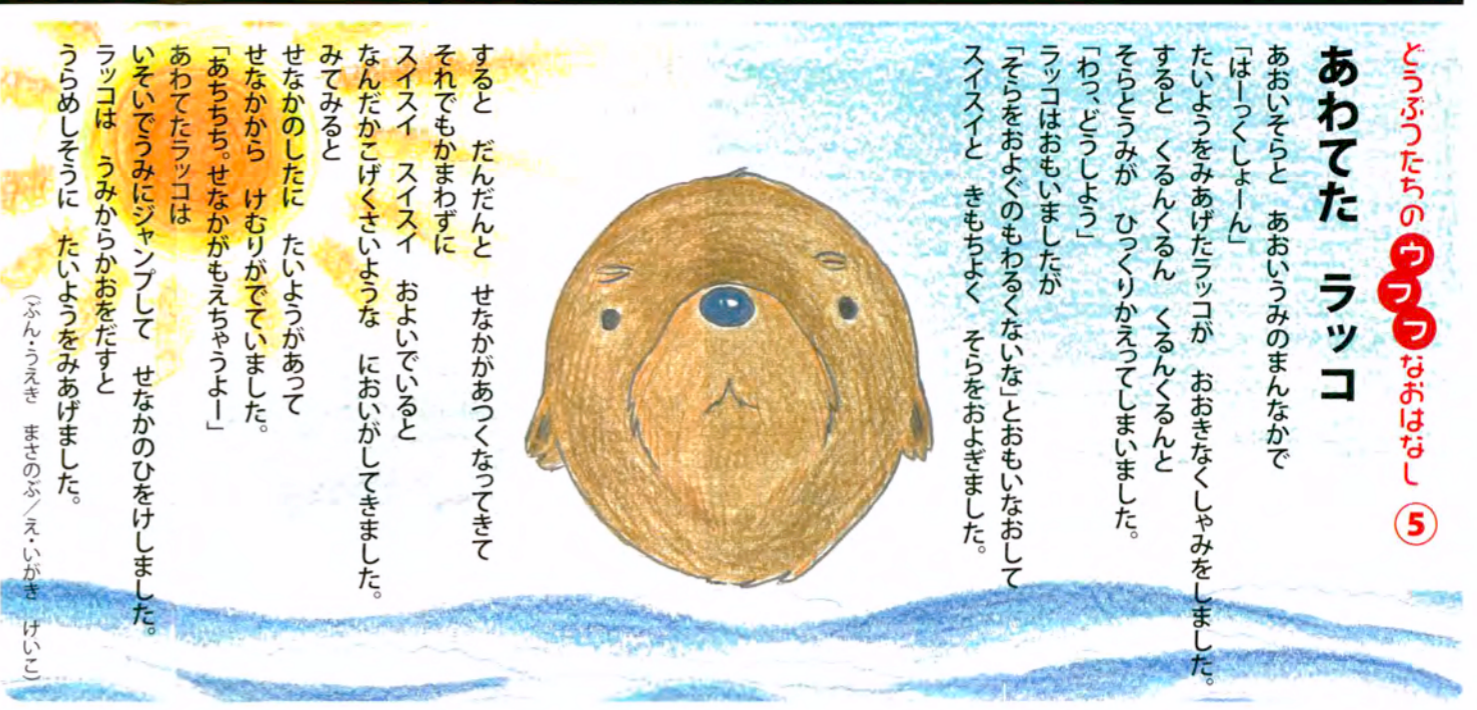 どうぶつたちのウフフなおはなし ⑤
あわてた ラッコ
あおいそらと あおいうみのまんなかで
「はーっくしょーん」
たいようをみあげたラッコが おおきなくしゃみをしました。
すると くるんくるん くるんくるんと
そらとうみが ひっくりかえってしまいました。
「わっ、どうしよう」
ラッコはおもいましたが
「そらをおよぐのもわるくないな」とおもいなおして
スイスイと きもちよく そらをおよぎました。
すると だんだんと せなかがあつくなってきて
それでもかまわずに
スイスイ スイスイ およいでいると
なんだかこげくさいような においがしてきました。
みてみると
せなかのしたに たいようがあって
せなかから けむりがでていました。
「あちちち。せなかがもえちゃうよー」
あわてたラッコは
いそいでうみにジャンプして せなかのひをけしました。
ラッコは うみからかおをだすと
うらめしそうに たいようをみあげました。
（ぶん・うえき まさのぶ／え・いがき けいこ）